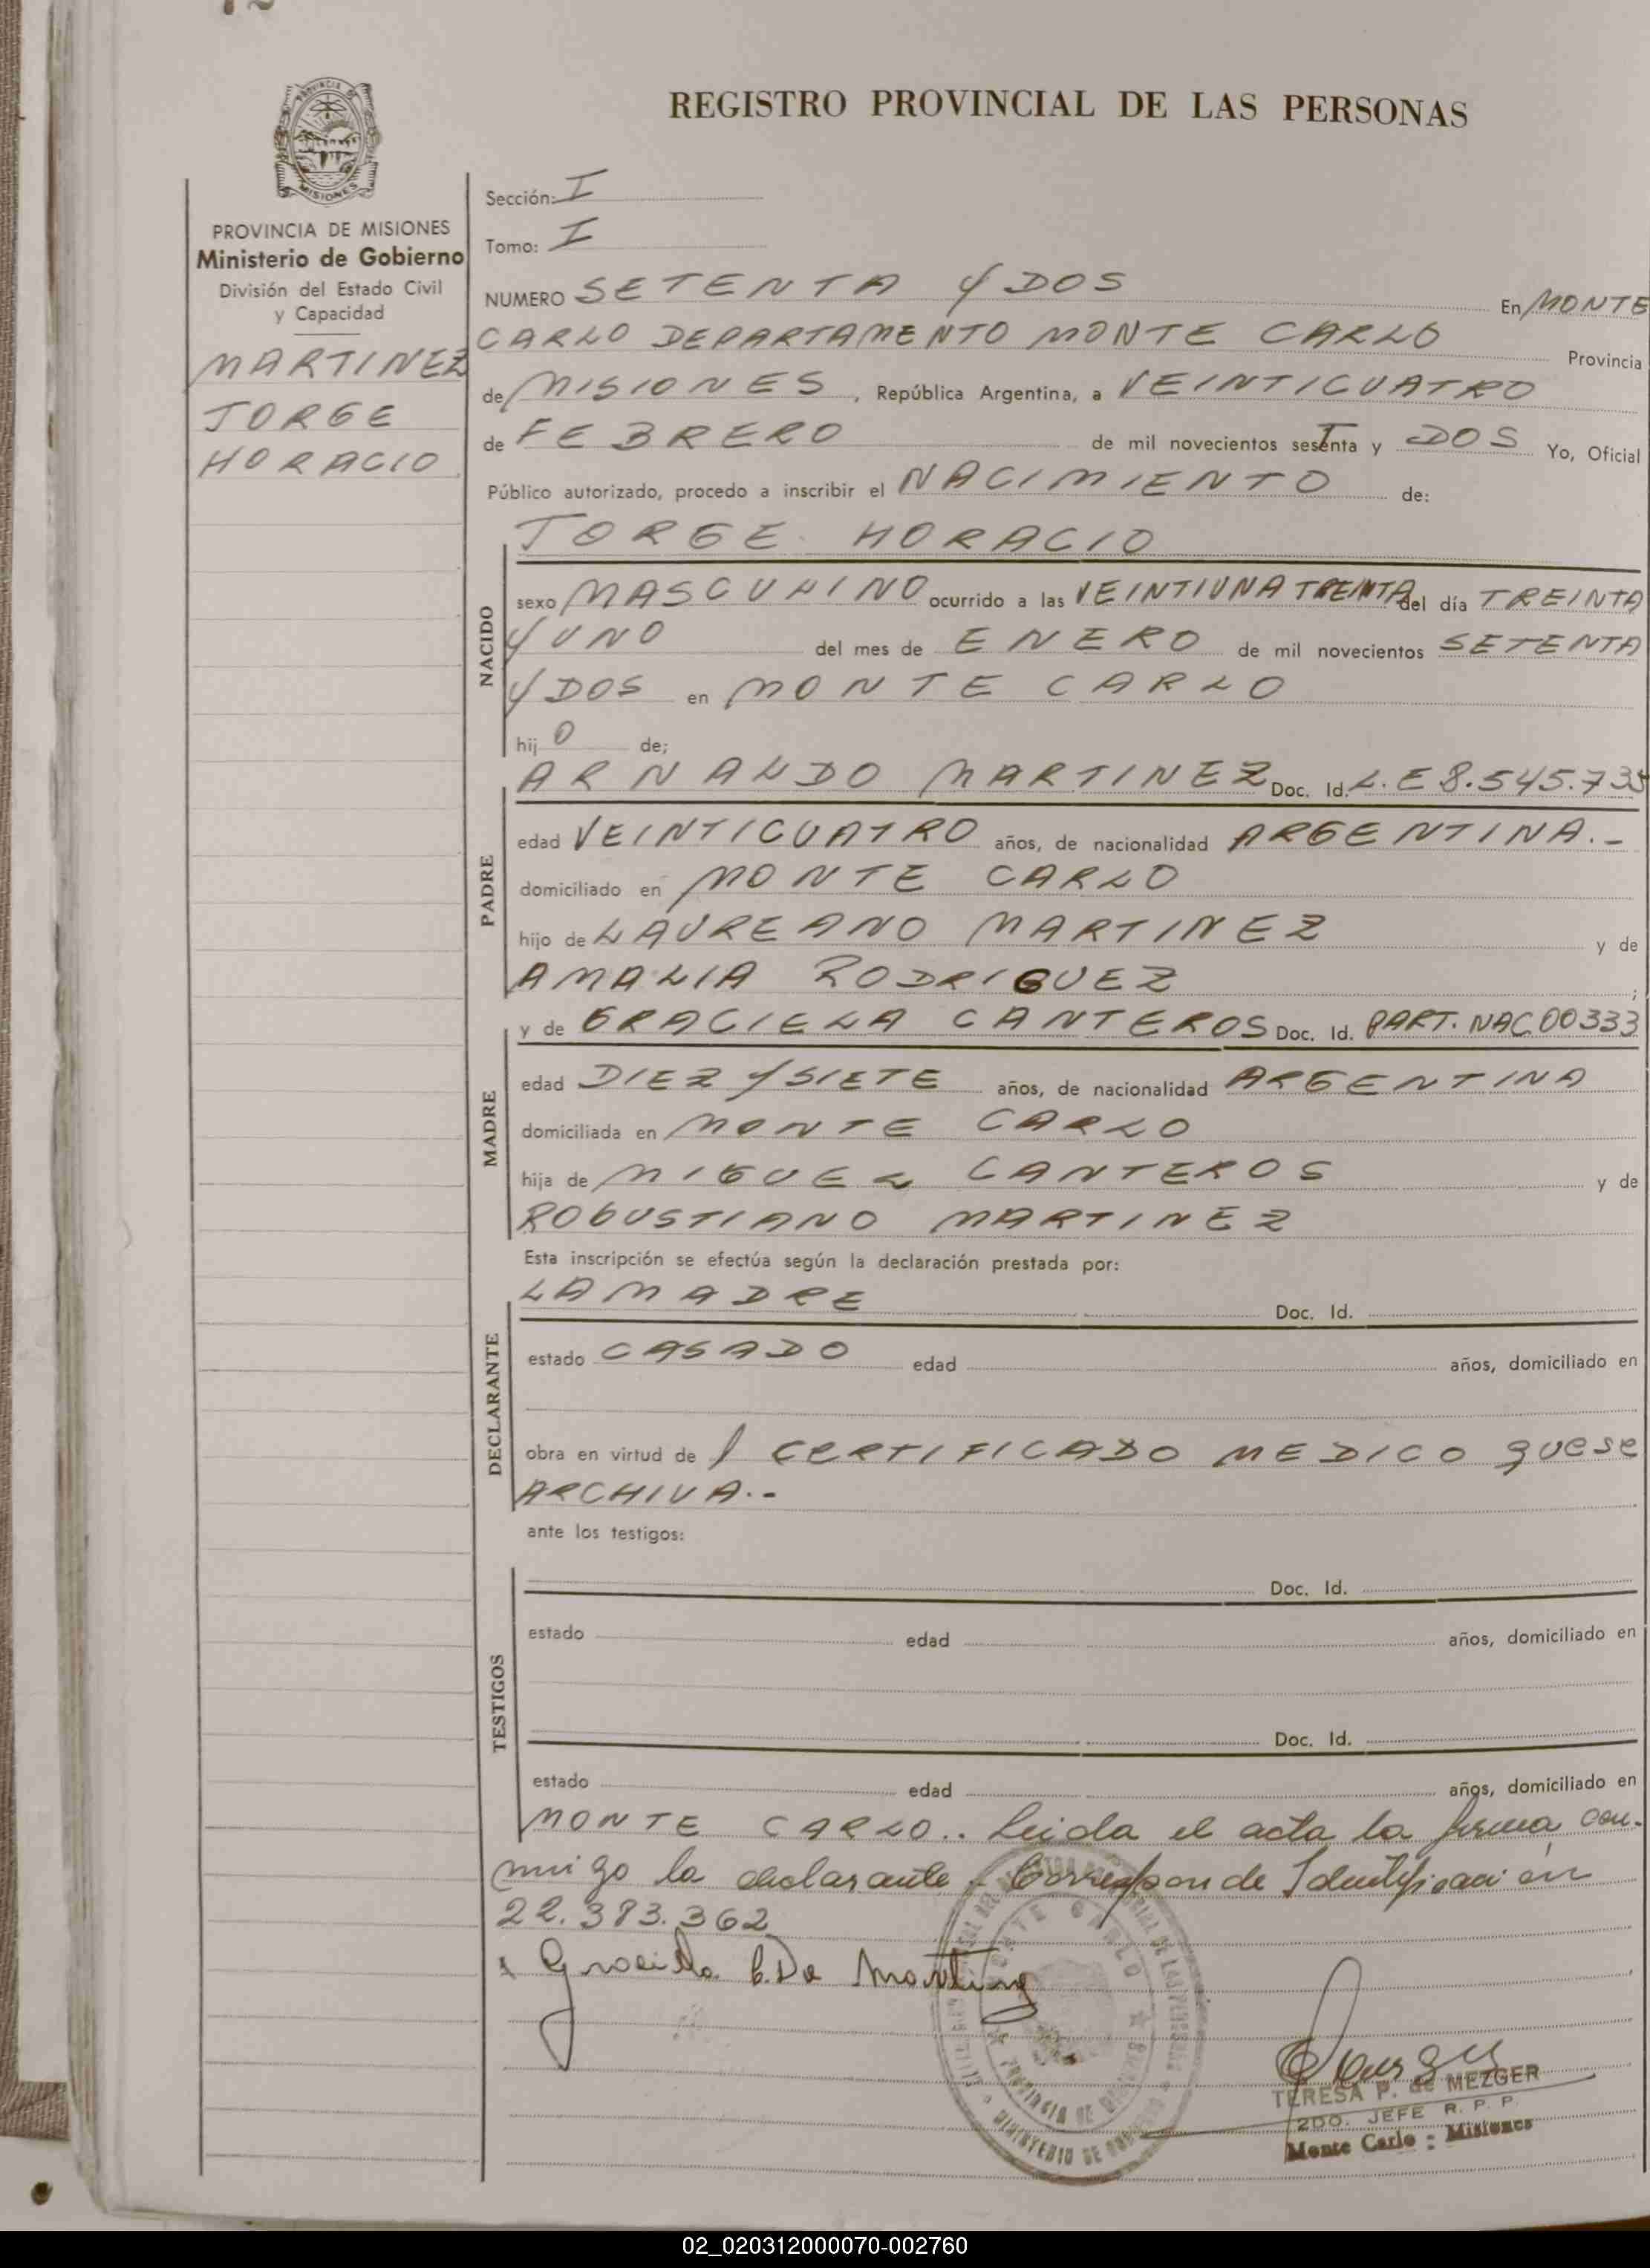 REGISTRO PROVINCIAL DE LAS PERSONAS
PROVINCIA DE MISIONES
Ministerio de Gobierno
División del Estado Civil
y Capacidad
MARTINEZ
JORGE
HORACIO
Sección: I
Tomo: I
NUMERO SETENTA Y DOS En MONTE
CARLO DEPARTAMENTO MONTE CARLO Provincia
de MISIONES, República Argentina, a VEINTICUATRO
de FEBRERO de mil novecientos setenta y DOS Yo, Oficial
Público autorizado, procedo a inscribir el NACIMIENTO de:
NACIDO
JORGE HORACIO
sexo MASCULINO ocurrido a las VEINTIUNA TREINTA del día TREINTA
Y UNO del mes de ENERO de mil novecientos SETENTA
Y DOS en MONTE CARLO
hij O de;
PADRE
ARNALDO MARTINEZ Doc. Id. L.E 8.545.735
edad VEINTICUATRO años, de nacionalidad ARGENTINA.-
domiciliado en MONTE CARLO
hijo de LAUREANO MARTINEZ y de
AMALIA RODRIGUEZ ;
MADRE
y de GRACIELA CANTEROS Doc. Id. PART. NAC 00333
edad DIEZ Y SIETE años, de nacionalidad ARGENTINA
domiciliada en MONTE CARLO
hija de MIGUEL CANTEROS y de
ROBUSTIANO MARTINEZ
Esta inscripción se efectúa según la declaración prestada por:
DECLARANTE
LA MADRE Doc. Id.
estado CASADO edad años, domiciliado en
obra en virtud de 1 CERTIFICADO MEDICO que se
ARCHIVA.-
ante los testigos:
TESTIGOS
Doc. Id.
estado edad años, domiciliado en
Doc. Id.
estado edad años, domiciliado en
MONTE CARLO.. Leida el acta la firma con-
migo la declarante.- Corresponde Identificación
22.383.362
Graciela C. De Martinez
TERESA P. de MEZGER
2DO. JEFE R. P. P.
Monte Carlo - Misiones
02_020312000070-002760